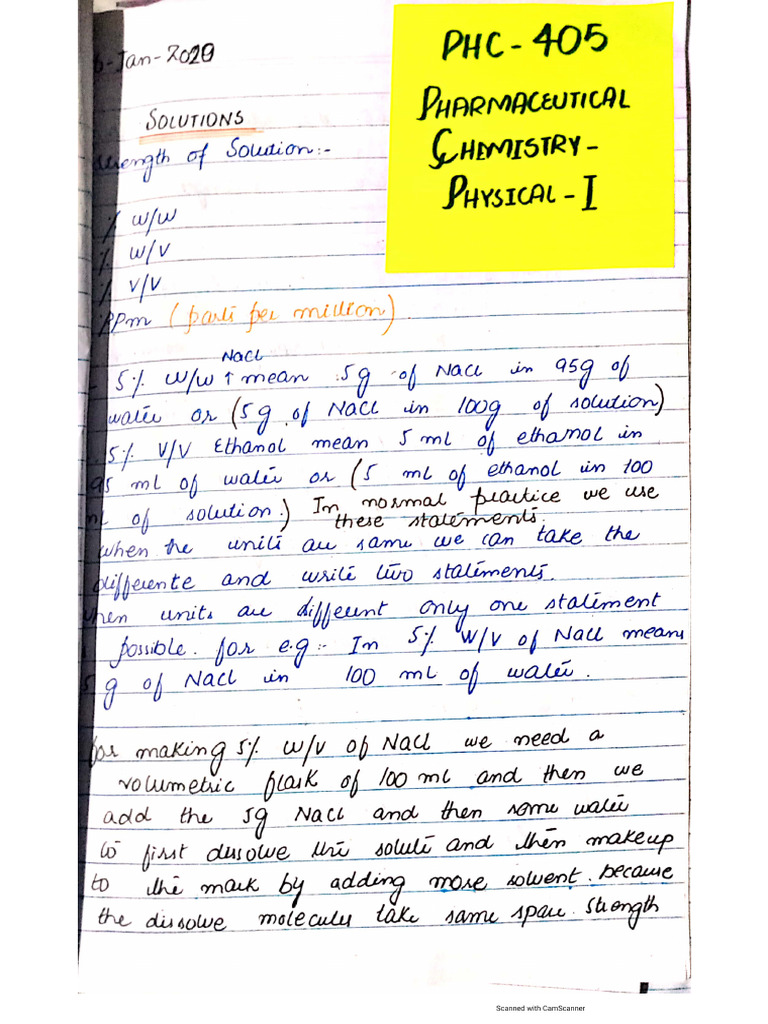 -Jan-2020
PHC-405
PHARMACEUTICAL
CHEMISTRY-
PHYSICAL-I
SOLUTIONS
strength of Solution:-
% W/W
% W/V
% V/V
PPm (parts per million)
NaCl
- 5% W/W ↑ mean 5g of NaCl in 95g of
water or (5g of NaCl in 100g of solution)
5% V/V Ethanol mean 5 ml of ethanol in
95 ml of water or (5 ml of ethanol in 100
ml of solution.) In normal practice we use
these statements.
when the units are same we can take the
differente and write two statements.
when units are different only one statement
possible. for e.g:- In 5% W/V of NaCl means
5g of NaCl in 100 ml of water.
for making 5% W/V of NaCl we need a
volumetric flask of 100 ml and then we
add the 5g NaCl and then some water
to first dissolve the solute and then makeup
to the mark by adding more solvent. because
the dissolve molecules take same space. strength
Scanned with CamScanner